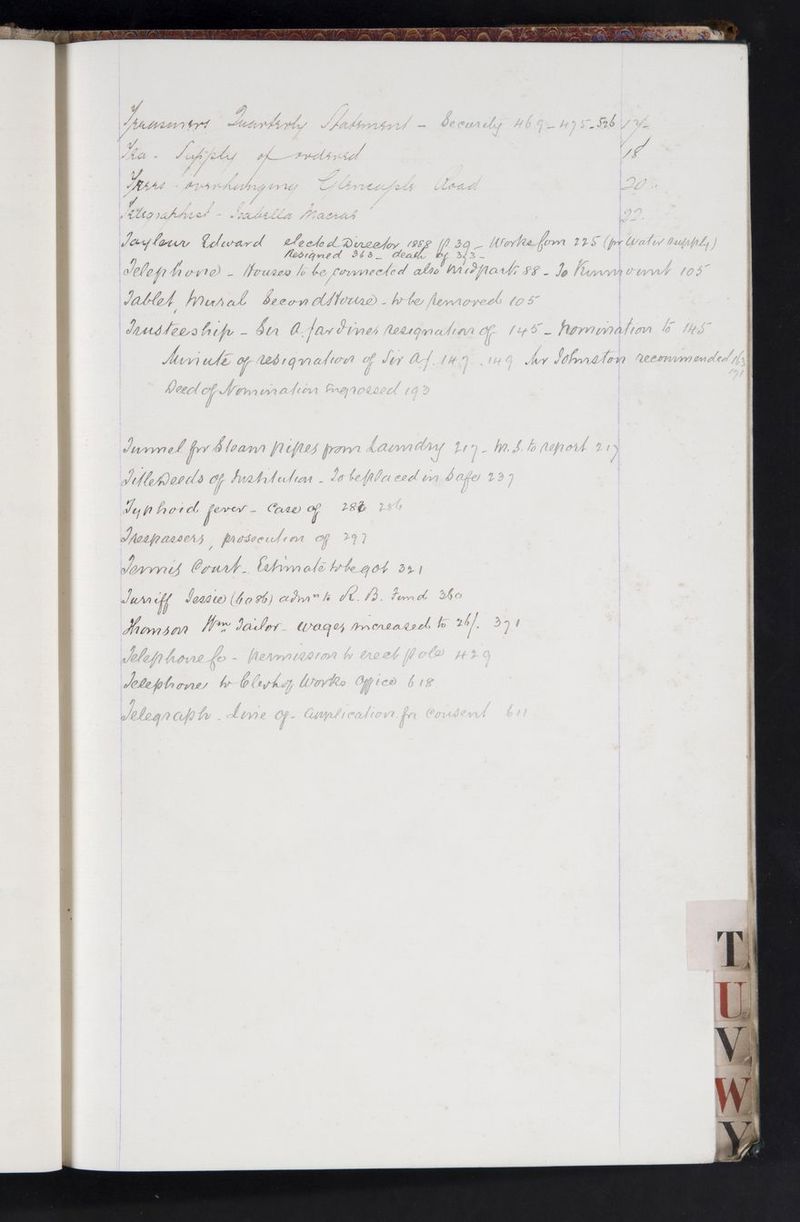 Treasurers Quarterly Statement - Security 469-475-526 17
Tea - Supply of ordered 18
Trees - overhanging Glencaple Road 20
Telegraphist - Isabella Macrae 22
Tayleur Edward elected Director 1888 p 39 - Works form 225 (for Water supply)
Resigned 363 - death of 373 -
Telephone - Houses to be connected also 88 - To Kinmount 105
Tablet Mural Second House - to be removed 105
Trusteeship - Sir A. Jardines resignation of 145 - Nomination to 145
Minute of resignation of Sir A J. 147 . 149 Mr Johnston recommended 163
171
Deed of Nomination Engrossed 193
Tunnel for Steam pipes from Laundry 217 - M.S. to report 217
Title Deeds of Institution - To be placed in Safe 237
Typhoid fever - Case of 286 286
Trespassers, prosecution of 297
Tennis Court - Estimate to be got 321
Turriff Jessie adm to R. B. Fund 360
Thomson Wm Tailor - wages increased to 26/. 371
Telephone Co - Permission to erect pole 429
Telephone to Clerk of Works Office 618
Telegraph - Line of - Application for consent 611
T
U
V
W
Y